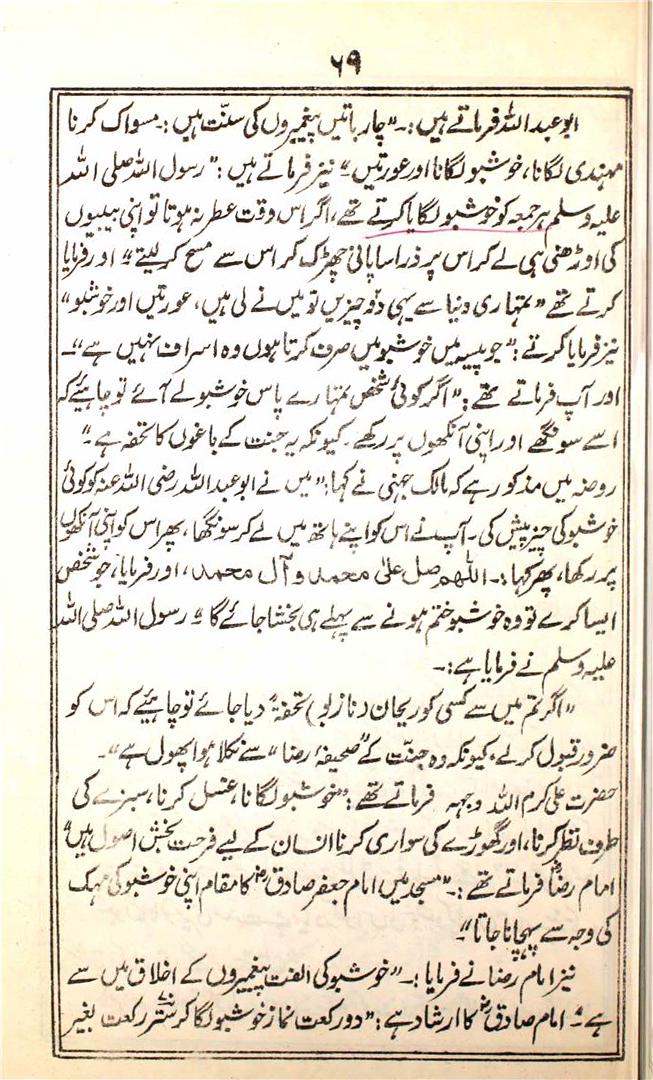 ۶۹
ابو عبد اللہ فرماتے ہیں :۔ "چار باتیں پیغمبروں کی سنّت ہیں :۔ مسواک کرنا
مہندی لگانا، خوشبو لگانا اور عورتیں" نیز فرماتے ہیں : "رسول اللہ صلی اللہ
علیہ وسلم ہر جمعہ کو خوشبو لگایا کرتے تھے، اگر اس وقت عطر نہ ہوتا تو اپنی بیبیوں
کی اوڑھنی ہی لے کر اس پر ذرا سا پانی چھڑک کر اس سے مسح کر لیتے" اور فرمایا
کرتے تھے "تمہاری دنیا سے یہی دو چیزیں تو میں نے لی ہیں، عورتیں اور خوشبو"
نیز فرمایا کرتے : "جو پیسہ میں خوشبو میں صرف کرتا ہوں وہ اسراف نہیں ہے"۔
اور آپ فرماتے تھے : "اگر کوئی شخص تمہارے پاس خوشبو لے آئے تو چاہیئے کہ
اسے سونگھے اور اپنی آنکھوں پر رکھے۔ کیونکہ یہ جنت کے باغوں کا تحفہ ہے"
روضہ میں مذکور ہے کہ مالک جہنی نے کہا : "میں نے ابو عبد اللہ رضی اللہ عنہ کو کوئی
خوشبو کی چیز پیش کی۔ آپ نے اس کو اپنے ہاتھ میں لے کر سونگھا، پھر اس کو اپنی آنکھوں
پر رکھا، پھر کہا :۔ اللّٰھم صل علیٰ محمد و آل محمد، اور فرمایا، جو شخص
ایسا کرے تو وہ خوشبو ختم ہونے سے پہلے ہی بخشا جائے گا" رسول اللہ صلی اللہ
علیہ وسلم نے فرمایا ہے :۔
"اگر تم میں سے کسی کو ریحان (نازبو) تحفۃً دیا جائے تو چاہیئے کہ اس کو
ضرور قبول کر لے، کیونکہ وہ جنّت کے "صحیفۂ رضا" سے نکلا ہوا پھول ہے"۔
حضرت علی کرم اللہ وجہہ فرماتے تھے : "خوشبو لگانا، غسل کرنا، سبزے کی
طرف نظر کرنا، اور گھوڑے کی سواری کرنا انسان کے لیے فرحت بخش اصول ہیں"
امام رضاؓ فرماتے تھے :۔ "مسجد میں امام جعفر صادقؓ کا مقام اپنی خوشبو کی مہک
کی وجہ سے پہچانا جاتا"۔
نیز امام رضا نے فرمایا :۔ "خوشبو کی الفت پیغمبروں کے اخلاق میں سے
ہے"۔ امام صادقؓ کا ارشاد ہے : "دو رکعت نماز خوشبو لگا کر ستّر رکعت بغیر